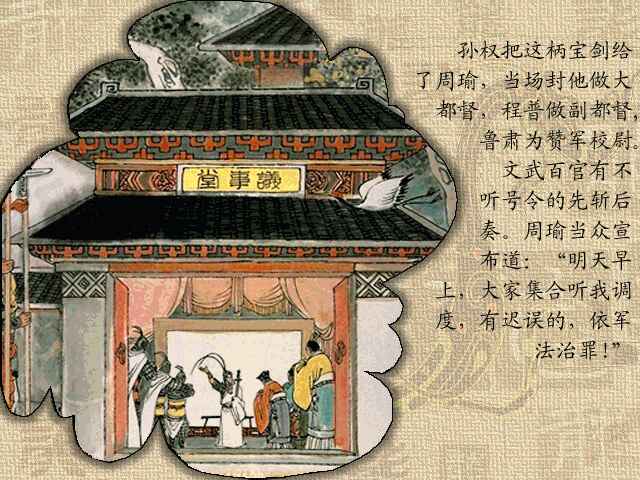 堂事議
孙权把这柄宝剑给
了周瑜，当场封他做大
都督，程普做副都督，
鲁肃为赞军校尉。
文武百官有不
听号令的先斩后
奏。周瑜当众宣
布道：“明天早
上，大家集合听我调
度，有迟误的，依军
法治罪！”